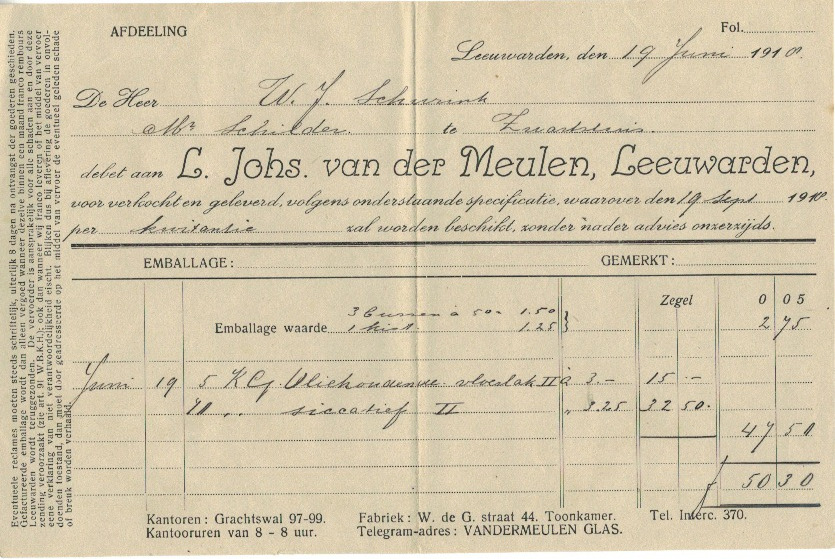 AFDEELING
Fol.
Leeuwarden, den 19 Juni 1918.
De Heer W. J. Schurink
Mr Schilder. te Zwartsluis.
debet aan L. Johs. van der Meulen, Leeuwarden,
voor verkocht en geleverd, volgens onderstaande specificatie, waarover den 19 Sept 1918.
per kwitantie zal worden beschikt, zonder nader advies onzerzijds.
EMBALLAGE: GEMERKT:
Zegel 0 05
3 bussen à 50- 1.50
Emballage waarde 1 kist 1.25 } 2 75
Juni 19 5 KG Oliehoudende vloerlak II à 3.- 15.-
10 " siccatief II " 3.25 32 50.
47 50
f 50 30
Kantoren: Grachtswal 97-99. Fabriek: W. de G. straat 44. Toonkamer. Tel. Interc. 370.
Kantooruren van 8 - 8 uur. Telegram-adres: VANDERMEULEN GLAS.
Eventueele reclames moeten steeds schriftelijk, uiterlijk 8 dagen na ontvangst der goederen geschieden.
Gefactureerde emballage wordt dan alleen vergoed wanneer dezelve binnen een maand franco rembours
Leeuwarden wordt teruggezonden. De vervoerder is aansprakelijk voor alle schaden aan en door deze
zending veroorzaakt (zie art. 91 W.B.K.H.); ook dan wanneer wij franco leveren of het middel van vervoer
eene verklaring van niet verantwoordelijkheid eischt. Blijken dus bij aflevering de goederen in onvol-
doenden toestand, dan moet door geadresseerde op het middel van vervoer de eventueel geleden schade
of breuk worden verhaald.